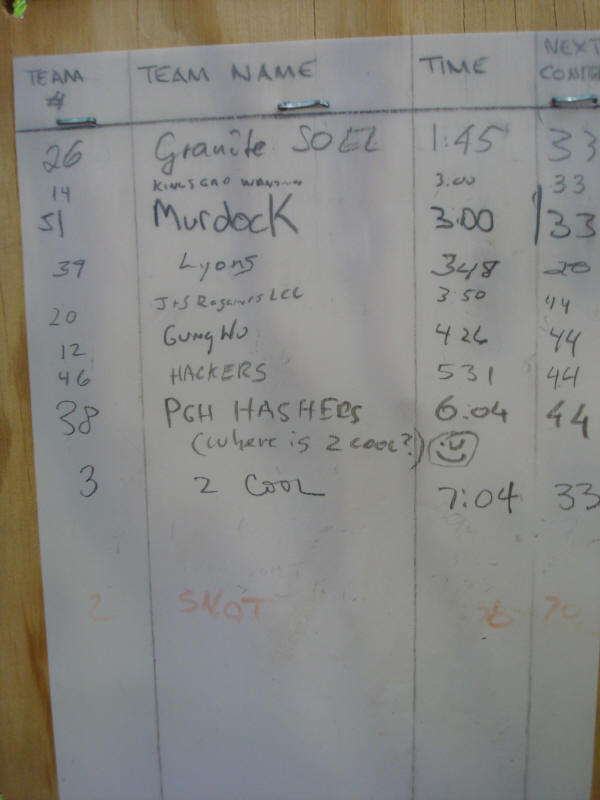 TEAM # TEAM NAME TIME NEXT
26 Granite SOEL 1:45 33
14 3:00 33
51 Murdock 3:00 33
39 Lyons 348 20
20 J+S LLC 3:50 44
12 Gung Ho 426 44
46 HACKERS 531 44
38 PGH HASHERS 6:04 44
(where is 2 cool?)
3 2 COOL 7:04 33
2 SNOT 70